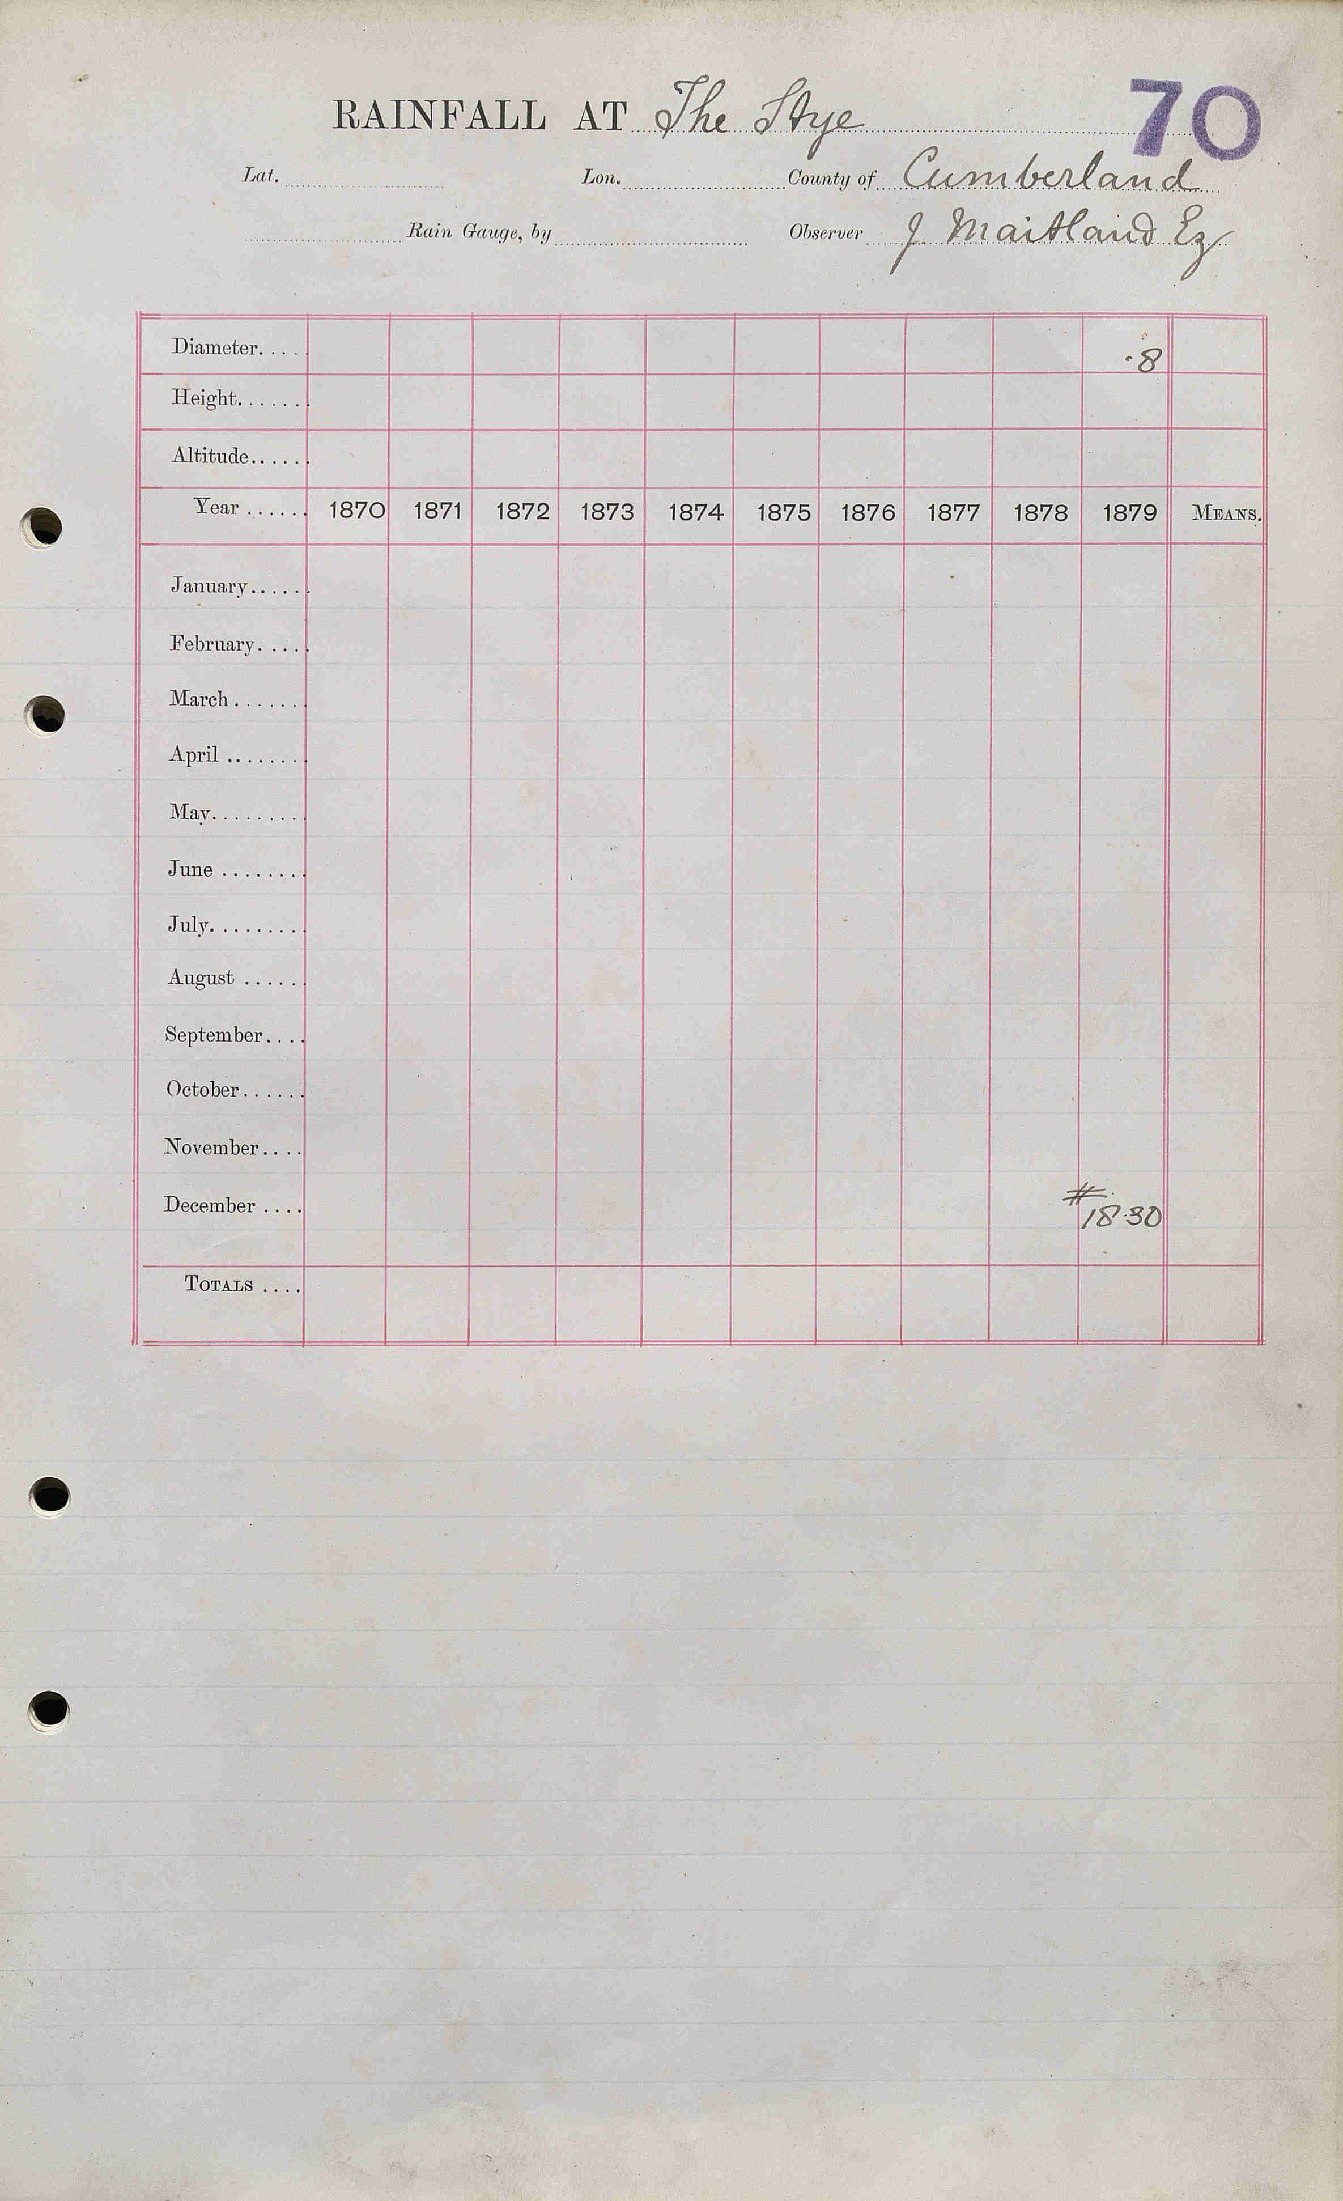 RAINFALL AT The Stye 70
Lat. Lon. County of Cumberland
Rain Gauge, by Observer J Maitland Ez
Diameter..... ·8
Height.......
Altitude......
Year ...... 1870 1871 1872 1873 1874 1875 1876 1877 1878 1879 MEANS.
January......
February.....
March .......
April .......
May.........
June ........
July.........
August ......
September....
October......
November....
December .... # 18·30
TOTALS ....